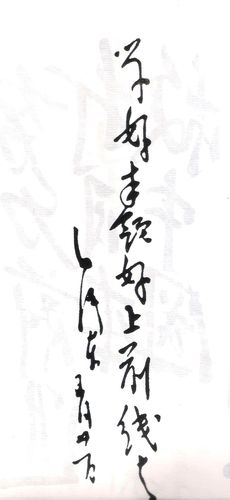 学好本领好上前线去
毛泽东 五月